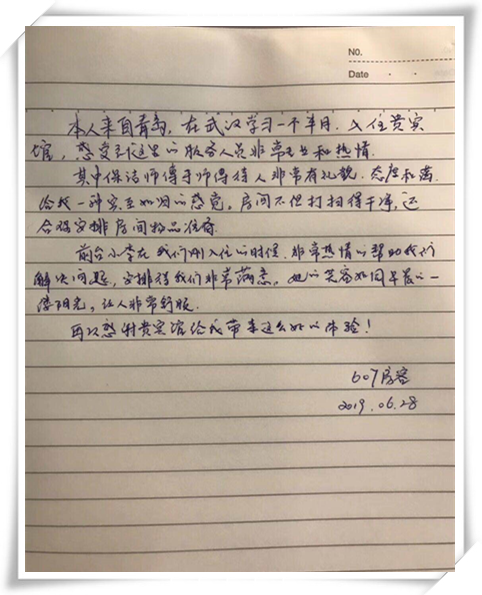 NO.
Date
本人来自青岛，在武汉学习一个半月，入住贵宾
馆，感受到这里的服务人员非常专业和热情。
其中保洁师傅于师傅待人非常有礼貌，态度和蔼，
给我一种宾至如归的感觉，房间不但打扫得干净，还
合理安排房间物品准备
前台小李在我们刚入住的时候，非常热情的帮助我们
解决问题，安排得我们非常满意，她的笑容如同早晨的一
缕阳光，让人非常舒服。
再次感谢贵宾馆给我带来这么好的体验！
607房客
2019.06.28